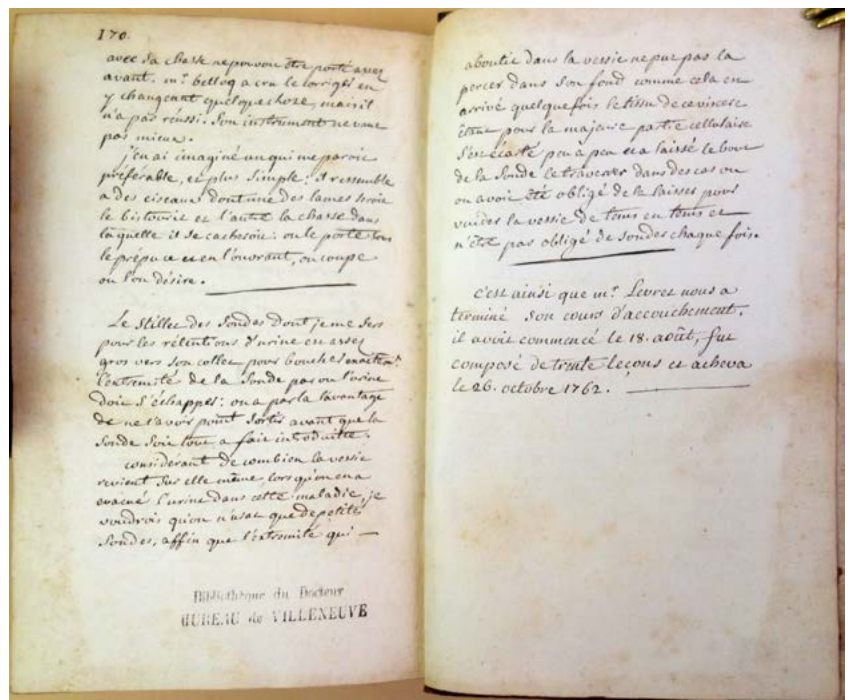 170.
avec sa chasse ne pouvoit être porté assez
avant. mr. belloq a cru le corriger en
y changeant quelque chose, mais il
n'a pas réussi. son instrument ne vaut
pas mieux.
j'en ai imaginé un qui me paroit
préférable, et plus simple: il ressemble
a des ciseaux dont une des lames seroit
le bistourie et l'autre la chasse dans
laquelle il se cacheroit: on le porte sous
le prépuce et en l'ouvrant, on coupe
ou l'on désire.
Le Stillet des sondes dont je me sers
pour les rétentions d'urine est assez
gros vers son collet pour boucher exactemt.
l'extremité de la sonde par ou l'urine
doit s'échapper: on a par la l'avantage
de ne l'avoir point sortir avant que la
sonde soit tout a fait introduitte.
considérant de combien la vessie
revient sur elle même, lorsqu'on en a
évacué l'urine dans cette maladie, je
voudrois qu'on n'usat que de petites
sondes, affin que l'extremité qui —
Bibliothèque du Docteur
BUREAU de VILLENEUVE
aboutit dans la vessie ne put pas la
percer dans son fond comme cela est
arrivé quelquefois le tissu de ce viscere
étant pour la majeure partie cellulaire
s'est écarté peu a peu et a laissé le bout
de la sonde le traverser dans des cas ou
on avoit été obligé de la laisser pour
vuider la vessie de tems en tems et
n'être pas obligé de sonder chaque fois.
c'est ainsi que mr. Levret nous a
terminé son cours d'accouchement.
il avoit commencé le 18. août, fut
composé de trente leçons et acheva
le 26. octobre 1762.